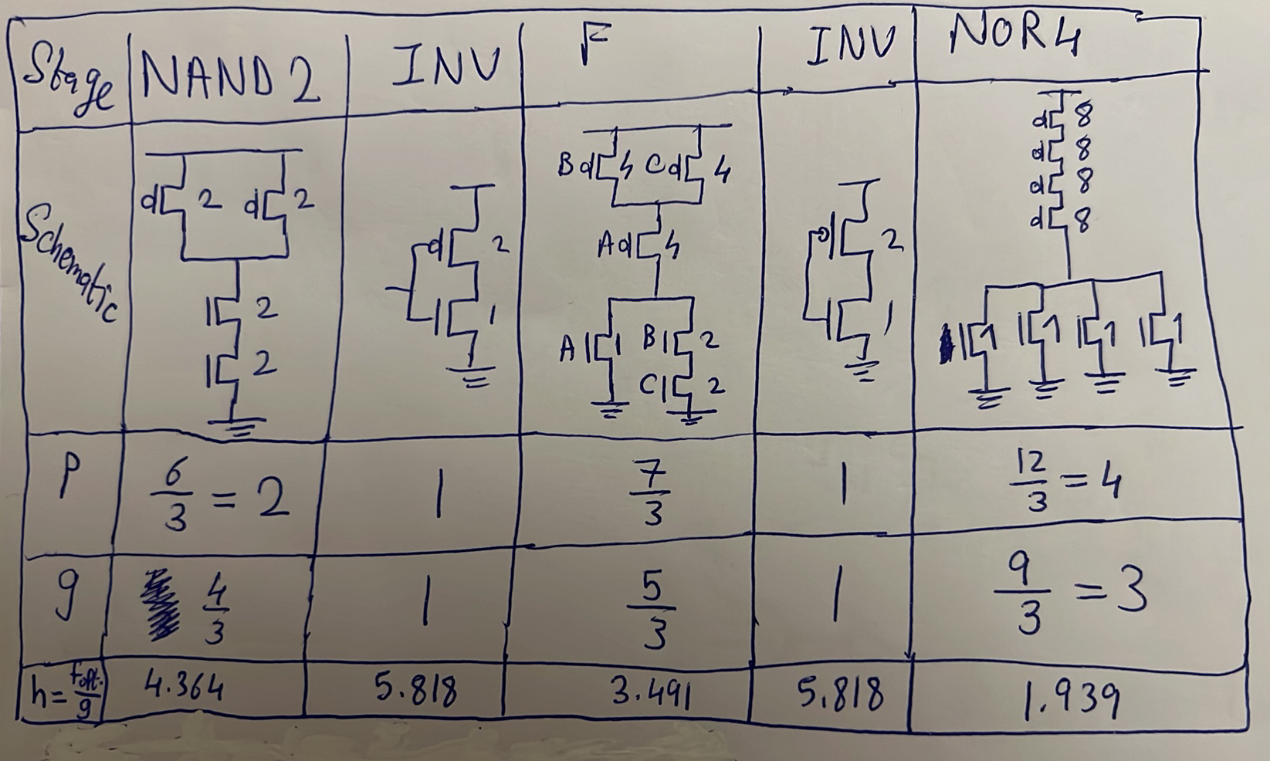 Stage NAND2 INV F INV NOR4
Schematic
2 2
2
2
2
1
B 4 C 4
A 4
A 1 B 2
C 2
2
1
8
8
8
8
1 1 1 1
P 6/3 = 2 1 7/3 1 12/3 = 4
g 4/3 1 5/3 1 9/3 = 3
h = fopt./g 4.364 5.818 3.491 5.818 1.939